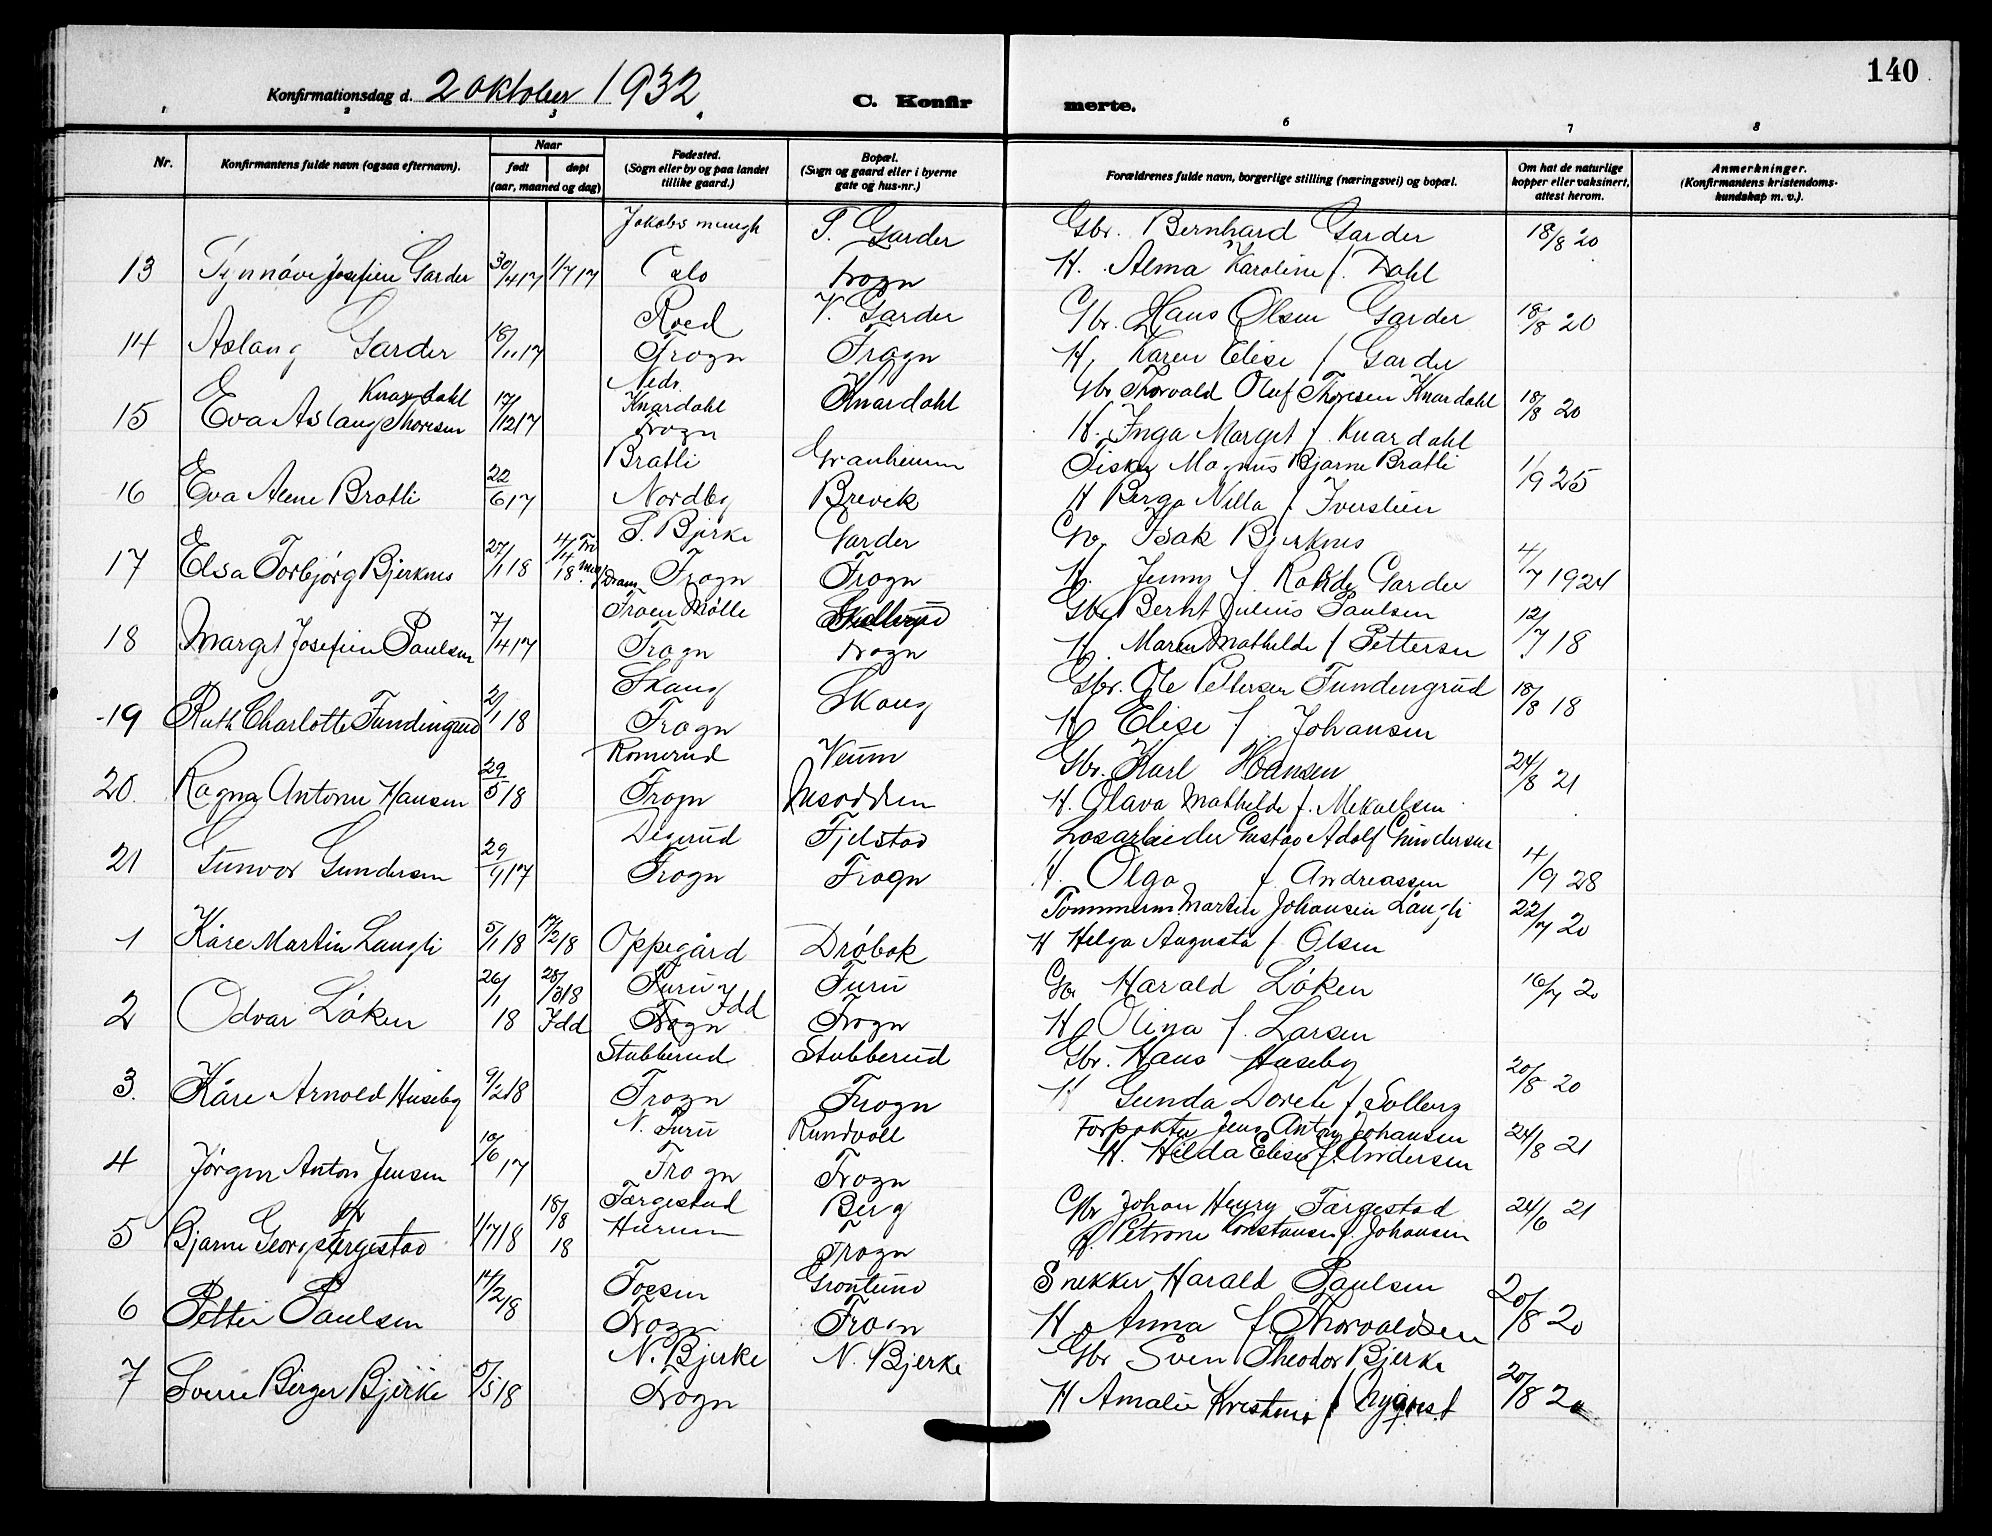 140
Konfirmationsdag d. 2 oktober 1932.
C. Konfirmerte.
1 2 3 4 6 7 8
Nr. Konfirmantens fulde navn (ogsaa efternavn). Naar født døpt (aar, maaned og dag) Fødested. (Sogn eller by og paa landet tillike gaard.) Bopæl. (Sogn og gaard eller i byerne gate og hus-nr.) Forældrenes fulde navn, borgerlige stilling (næringsvei) og bopæl. Om hat de naturlige kopper eller vaksinert, attest herom. Anmerkninger. (Konfirmantens kristendomskundskap m. v.).
Jakobs S. Garder Gbr. Bernhard Garder 18/8 20
13 Synnöve Josefien Garder 30/4 17 1/7 17 Oslo Frogn H. Alma Karoline f. Dahl
Roed V. Garder Gbr. Hans Olsen Garder 18/8 20
14 Aslaug Garder 18/11 17 Frogn Frogn H. Karen Elise f Garder
Knardahl Nedr. Knardahl Knardahl Gbr Thorvald Oluf Thoresen Knardahl 18/8 20
15 Eva Aslaug Thoresen 17/12 17 Frogn H. Inga Marget f. Knardahl
Bratli Granheimm Fisker Magnus Bjarne Bratli 1/9 25
16 Eva Alene Bratli 22/6 17 Nordby Brevik H Berga Nilla f Iverslien
S. Bjerke Garder Gbr Isak Bjerknes
17 Elsa Torbjörg Bjerknes 27/1 18 4/4 18 Fri mgh Dram. Frogn Frogn H. Jenny f. Garder 4/7 1924
Froen Mölle Skallerud Gbr Bernt Julius Paulsen 12/7 18
18 Marget Josefien Paulsen 7/4 17 Frogn Frogn H. Maren Mathilde f Pettersen
Skaug Skaug Gbr. Ole Pettersen Fundengrud 18/8 18
19 Ruth Charlotte Fundingrud 2/1 18 Frogn H Elise f. Johansen
Romerud Veum Gbr. Karl Hansen 24/8 21
20. Ragna Antonie Hansen 29/5 18 Frogn Nesodden H. Olava Mathilde f. Mikaelsen
Degerud Fjelstad Losarbeider Gustav Adolf Gundersen
21 Gunvor Gundersen 29/9 17 Frogn Frogn H. Olga f. Andreassen 4/9 28
Tømmerm. Martin Johansen Langli 22/7 20
1 Kåre Martin Langli 5/1 18 17/2 18 Oppegård Dröbak H Helga Augusta f. Olsen
Furu Idd Furu Gbr Harald Löken 16/7 20
2 Odvar Löken 26/1 18 28/3 18 Idd Frogn Frogn H Olina f. Larsen
Stubberud Stubberud Gbr. Hans Huseby 20/8 20
3. Kåre Arnold Huseby 9/2 18 Frogn Frogn H Gunda Dorete f Solberg
N. Furu Rundvoll Forpakter Jens Anton Johansen 24/8 21
4 Jörgen Anton Jensen 10/6 17 Frogn Frogn H. Hilda Elise f. Andersen
Færgestad Berg Gbr Johan Henry Færgestad 24/6 21
5 Bjarne Georg Færgestad 1/7 18 18/8 18 Hurum Frogn H. Petrone Konstanse f. Johansen
Foesen Grøntund Snekker Harald Paulsen 20/8 20
6 Petter Paulsen 14/2 18 Frogn Frogn H. Anna f. Thorvaldsen
N. Bjerke N. Bjerke Gbr Sven Theodor Bjerke 20/8 20
7 Sverre Birger Bjerke 5/5 18 Frogn H Amalie Kristine f Nyqvist